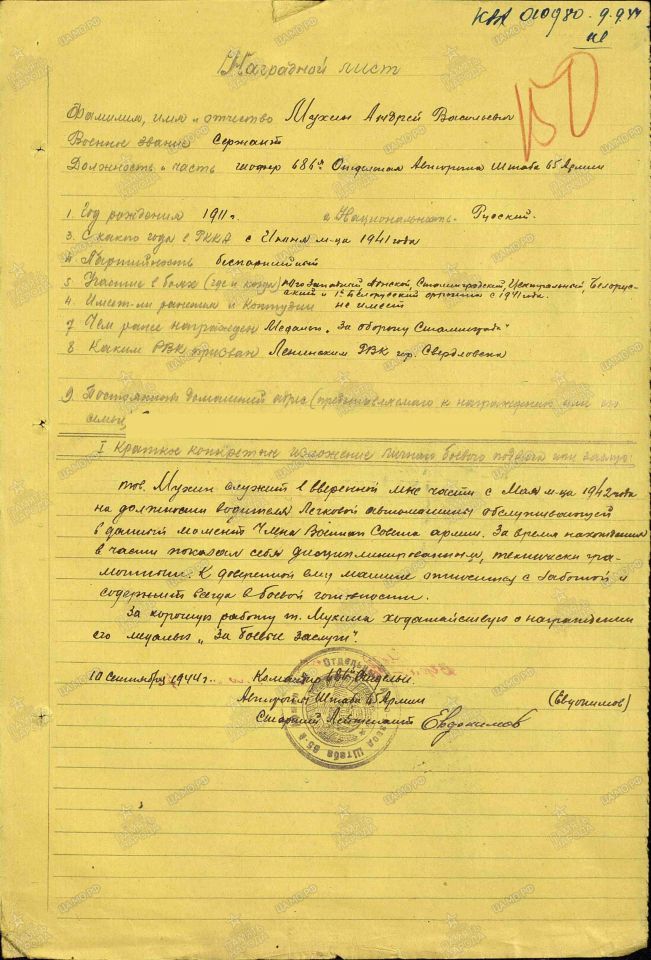 КВА 010980. 9.9.44
150
Наградной лист
Фамилия, имя и отчество Мухин Андрей Васильевич
Военное звание Сержант
Должность и часть шофер 686й Отдельная Авторота Штаба 65 Армии
1. Год рождения 1911 г. 2 Национальность - Русский.
3. С какого года в РККА с Июня м-ца 1941 года
4. Партийность беспартийный
5 Участие в боях (где и когда) Юго Западный Донской, Сталинградский, Центральный, Белорус-
ский и 1й Белорусский фронты с 1941 года.
4. Имеет-ли ранения и контузии не имеет
7 Чем ранее награжден Медалью „За оборону Сталинграда"
8 Каким РВК призван Ленинским РВК гор. Свердловска
9 Постоянный домашний адрес (представляемого к награждению или его
семьи
I Краткое конкретное изложение личного боевого подвига или заслуг:
тов. Мухин служит в вверенной мне части с Мая м-ца 1942 года
на должности водителя Легковой автомашины обслуживающей
в данный момент Члена Военного Совета армии. За время нахождения
в части показал себя дисциплинированным, технически гра-
мотным. К доверенной ему машине относится с заботой и
содержит всегда в боевой готовности.
За хорошую работу т. Мухина ходатайствую о награждении
его медалью „За боевые заслуги".
10 Сентября 1944 г. Командир 686й Отдельн
Авророты Штаба 65 Армии (Евдокимов)
Старший Лейтенант Евдокимов
Штаба 65-й
ЦАМО.РФ
ПАМЯТЬ НАРОДА